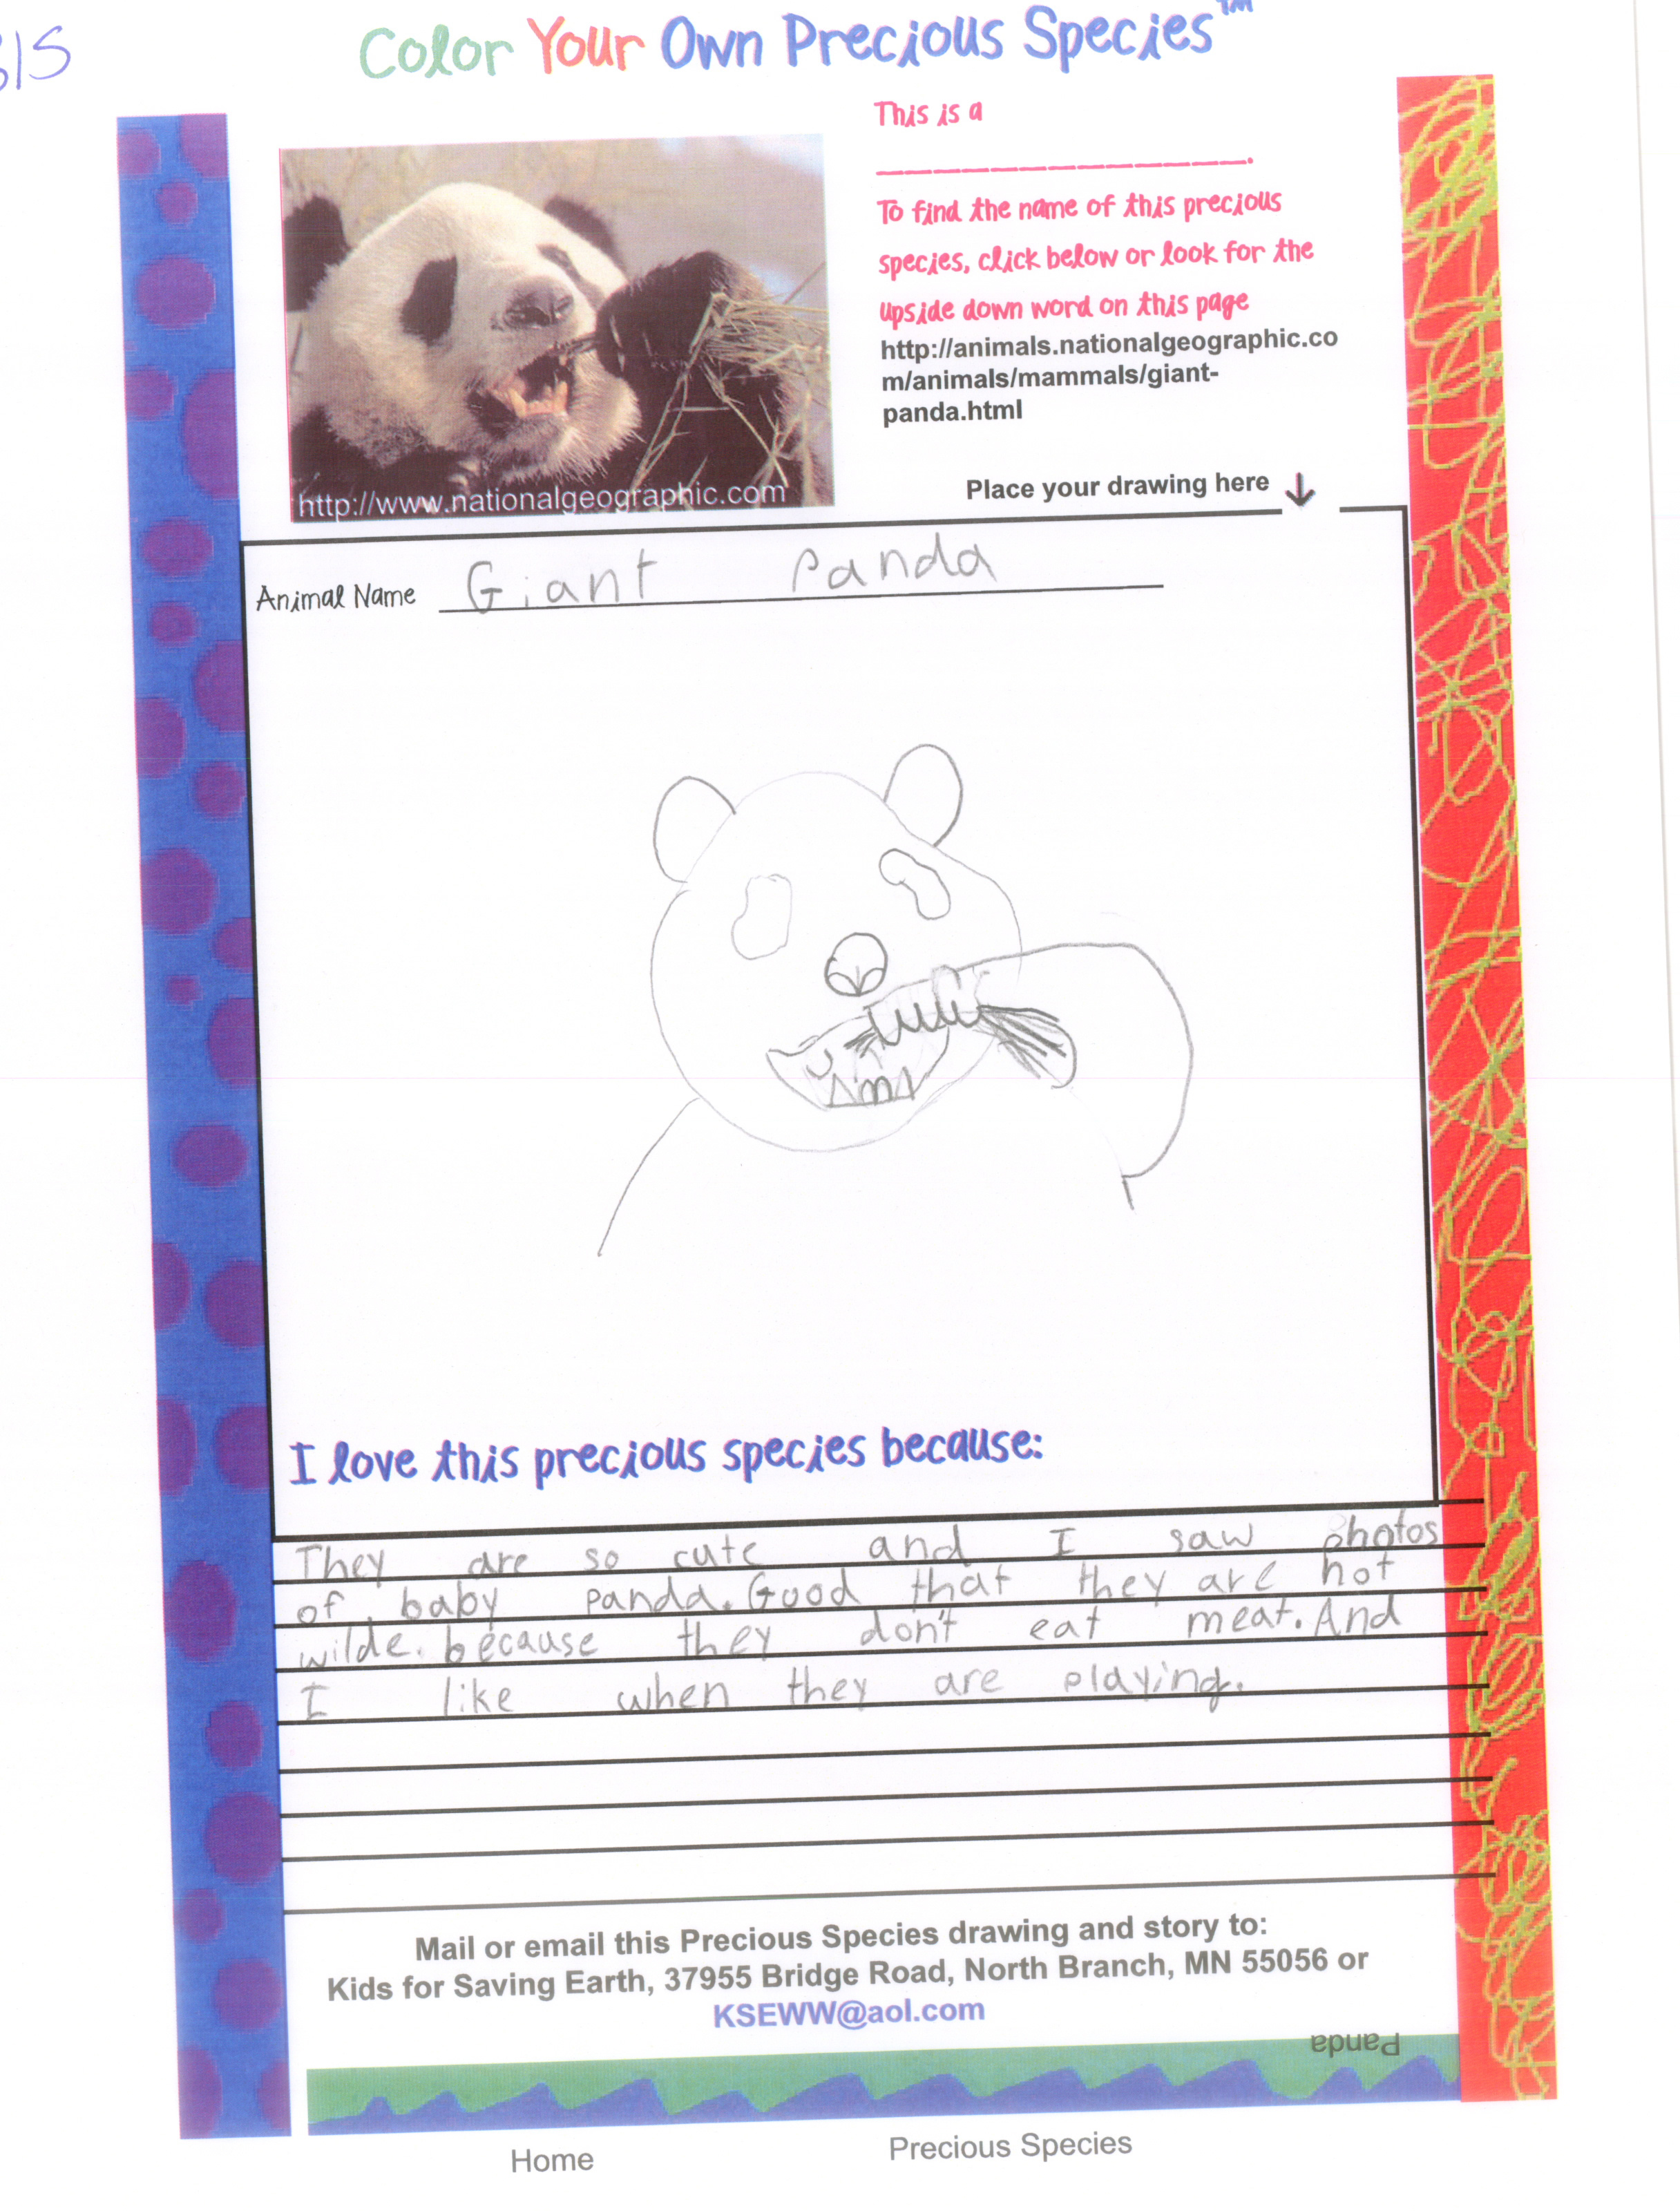 Color Your Own Precious Species™
This is a
____________________.
To find the name of this precious
species, click below or look for the
upside down word on this page
http://animals.nationalgeographic.co
m/animals/mammals/giant-
panda.html
http://www.nationalgeographic.com
Place your drawing here
Animal Name Giant Panda
I love this precious species because:
They are so cute and I saw photos
of baby panda. Good that they are not
wilde. because they don't eat meat. And
I like when they are playing.
Mail or email this Precious Species drawing and story to:
Kids for Saving Earth, 37955 Bridge Road, North Branch, MN 55056 or
KSEWW@aol.com
Panda
Home Precious Species